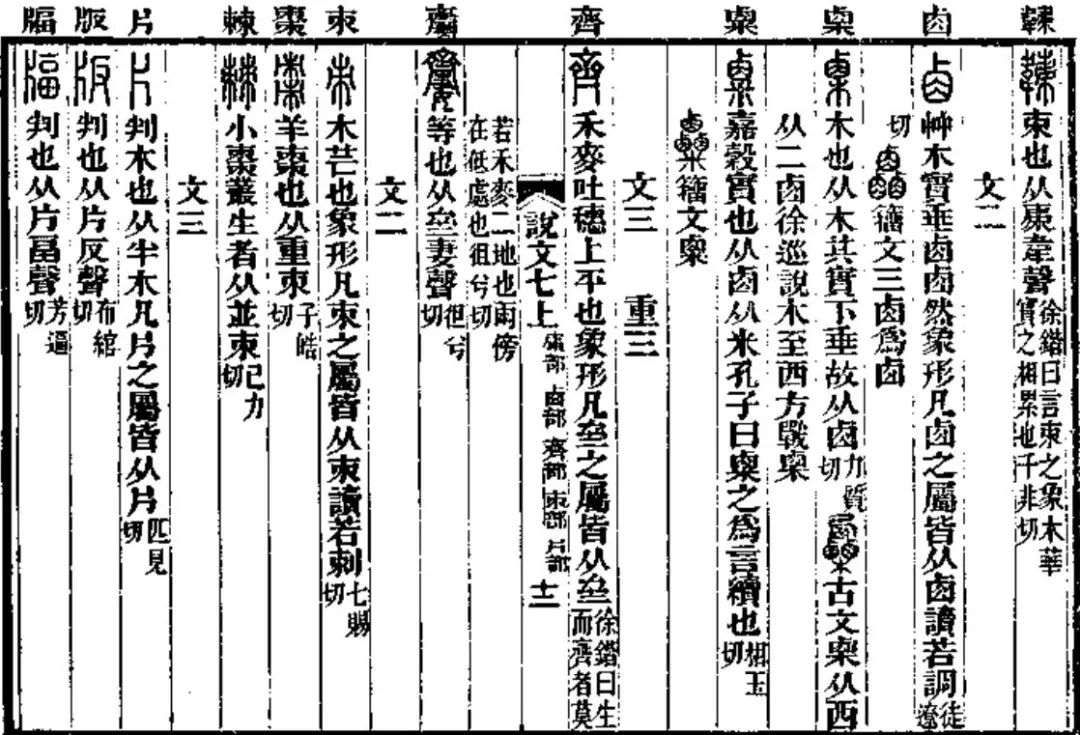 卤 㮚 𥻆 齊 𪗍 朿 棗 棘 片 版 𤗚
束也从𢎘韋聲徐鍇曰言束之象木華實之相累也于非切
文二
卤艸木實垂卤卤然象形凡卤之屬皆从卤讀若調徒遼
切 籒文三卤爲卤
㮚木也从木其實下垂故从卤力質切 古文㮚从西
从二卤徐巡說木至西方戰㮚
𥻆嘉穀實也从卤从米孔子曰𥻆之爲言續也相玉切
籒文𥻆
文三 重三
齊禾麥吐穗上平也象形凡亝之屬皆从亝徐鍇曰生而齊者莫
說文七上 卤部 齊部 朿部 片部 十二
若禾麥二地也兩傍在低處也徂兮切
𪗍等也从亝妻聲徂兮切
文二
朿木芒也象形凡朿之屬皆从朿讀若刺七賜切
棗羊棗也从重朿子皓切
棘小棗叢生者从並朿己力切
文三
片判木也从半木凡片之屬皆从片匹見切
版判也从片反聲布綰切
𤗚判也从片畐聲芳逼切